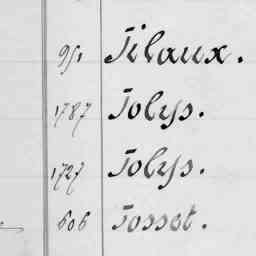 951 Tilaux.
1787 Tolys.
1727 Tolys.
606 Tosset.